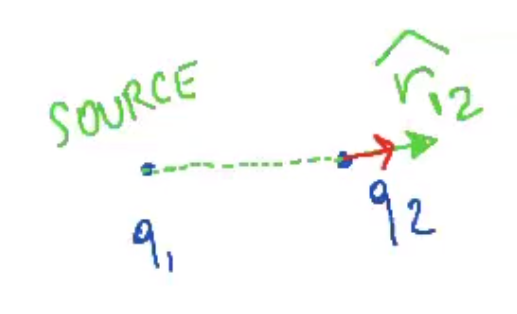 SOURCE
r̂₁₂
q₁
q₂